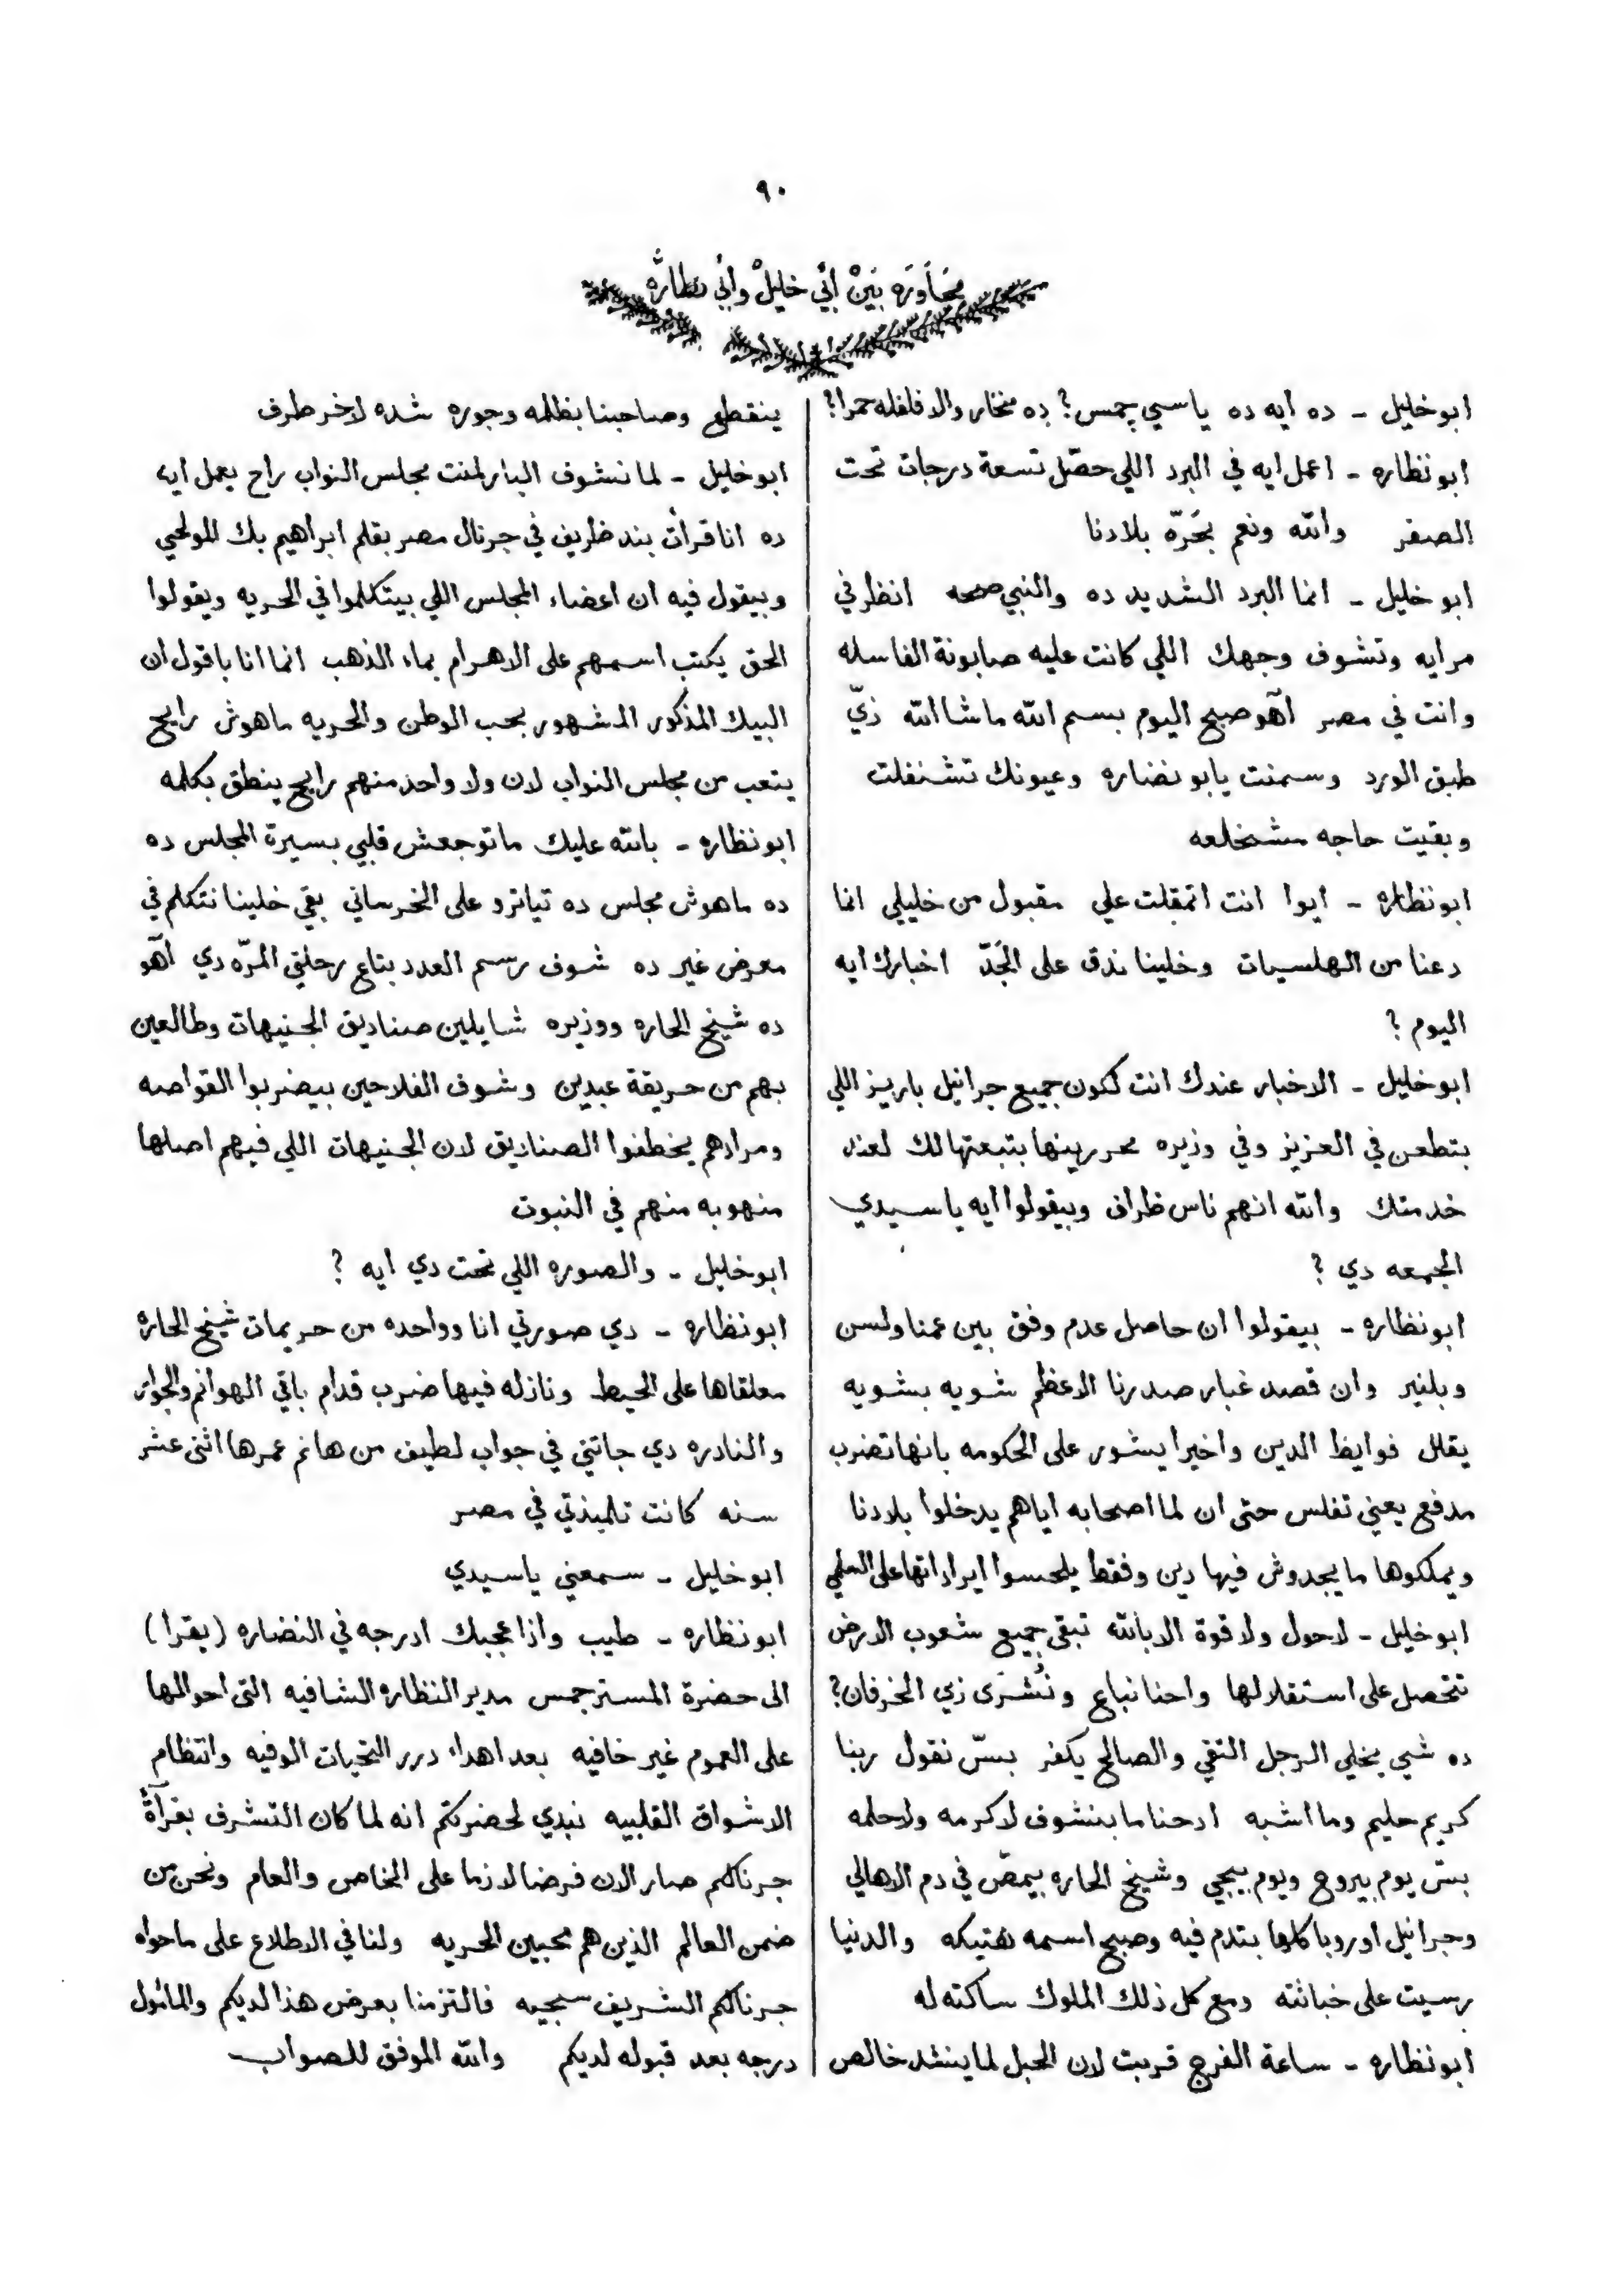 ٩٠
مُحَاوَرَه بَيْنْ أَبِي خليلْ وأبي نظارَّه
ابو خليل - ده ايه ده ياسي چمس؟ ده مخار والا فلفله حمرا؟
ابو نظاره - اعمل ايه في البرد اللي حصّل تسعة درجات تحت
الصفر والله ونعم بحَرّه بلادنا
ابو خليل - انما البرد الشديد ده والنبي صحه انظر في
مرايه وتشوف وجهك اللي كانت عليه صابونة الغاسله
وانت في مصر آهو صبح اليوم بسم الله ماشا الله زيّ
طبق الورد وسمنت يابو نضاره وعيونك تشنفلت
وبقيت حاجه مشخلعه
ابو نظاره - ايوا انت اتمقلت علي مقبول من خليلي انما
دعنا من الهلسيات وخلينا ندق على الجَدّ اخبارك ايه
اليوم ؟
ابو خليل - الاخبار عندك انت لكون جميع جرانيل باريز اللي
بتطعن في العزيز وفي وزيره محررينها بتبعتها لك لعند
خدمتك والله انهم ناس ظراف وبيقولوا ايه ياسيدي
الجمعه دي ؟
ابو نظاره - بيقولوا ان حاصل عدم وفق بين عمنا ولسن
وبلنير وان قصد غبار صدرنا الاعظم شويه بشويه
يقلل فوايظ الدين واخيرا يشور على الحكومه بانها تضرب
مدفع يعني تفلس حتى ان لما اصحابه اياهم يدخلوا بلادنا
ويملكوها ما يجدوش فيها دين وفقط يلحسوا ايراداتها على
ابو خليل - لاحول ولا قوة الا بالله تبقى جميع شعوب الارض
تتحصل على استقلالها واحنا نباع ونُشرَى زي الخرفان؟
ده شي يخلي الرجل التقي والصالح يكفر بسّ نقول ربنا
كريم حليم وما اشبه ادحنا ما بنشوف لا كرمه ولا حلمه
بسّ يوم بيروح ويوم بييجي وشيخ الحاره بيمصّ في دم الاهالي
وجرانيل اوروبا كلها بتدم فيه وصبح اسمه هتيكه والدنيا
رسيت على خباثته ومع كل ذلك الملوك ساكته له
ابو نظاره - ساعة الفرج قربت لان الحبل لما ينشد خالص
ينقطع وصاحبنا بظلمه وجوره شده لاخر طرف
ابو خليل - لما نشوف البارلمنت مجلس النواب راح يعمل ايه
ده انا قرأت بند ظريف في جرنال مصر بقلم ابراهيم بك المولحي
وبيقول فيه ان اعضاء المجلس اللي بيتكلموا في الحريه ويقولوا
الحق يكتب اسمهم على الاهرام بماء الذهب انما انا باقول ان
البيك المذكور المشهور بحب الوطن والحريه ماهوش رايح
يتعب من مجلس النواب لان ولا واحد منهم رايح ينطق بكلمه
ابو نظاره - بالله عليك ما توجعش قلبي بسيرة المجلس ده
ده ماهوش مجلس ده تياترو على الخرساني بقي خلينا نتكلم في
معرض غير ده شوف رسم العدد بتاع رحلتي المرّه دي آهو
ده شيخ الحاره ووزيره شايلين صناديق الجنيهات وطالعين
بهم من حريقة عبدين وشوف الفلاحين بيضربوا القواصه
ومرادهم يخطفوا الصناديق لان الجنيهات اللي فيهم اصلها
منهوبه منهم في النبوت
ابو خليل - والصوره اللي تحت دي ايه ؟
ابو نظاره - دي صورتي انا وواحده من حريمات شيخ الحاره
معلقاها على الحيط ونازله فيها ضرب قدام باقي الهوانم والجوار
والنادره دي جاتني في جواب لطيف من هانم عمرها اثنى عشر
سنه كانت تلميذتي في مصر
ابو خليل - سمعني ياسيدي
ابو نظاره - طيب واذا عجبك ادرجه في النضاره (يقرا)
الى حضرة المستر جمس مدير النظاره الشافيه التى احوالها
على العموم غير خافيه بعد اهداء درر التحيات الوفيه وانتظام
الاشواق القلبيه نبدي لحضرتكم انه لما كان التشرف بقرآة
جرنالكم صار الان فرضا لازما على الخاص والعام ونحن من
ضمن العالم الذين هم محبين الحريه ولنا في الاطلاع على ماحواه
جرنالكم الشريف سجيه فالتزمنا بعرض هذا لديكم والمأمول
درجه بعد قبوله لديكم والله الموفق للصواب